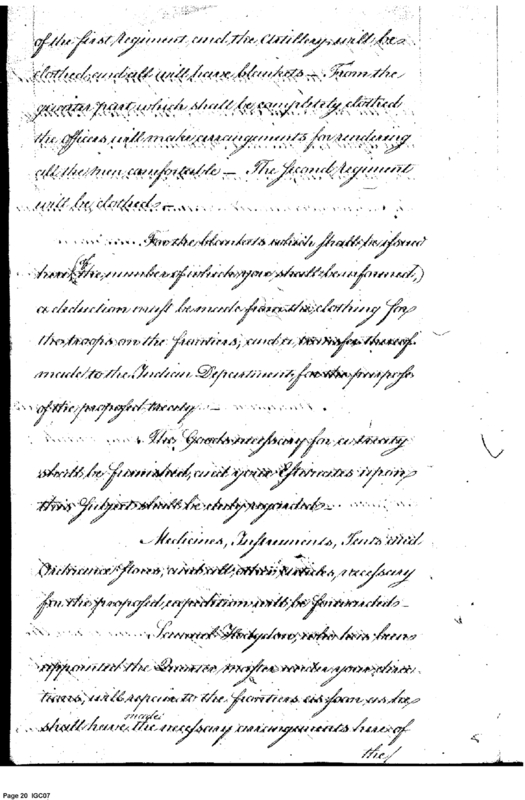 of the first Regiment and the Artillery, will be
clothed, and all will have blankets — From the
greater part which shall be completely clothed
the officers will make arrangements for rendering
all the men comfortable — The second Regiment
will be clothed —
For the blankets which shall be issued
here (the number of which you shall be informed,)
a deduction must be made from the clothing for
the troops on the frontiers, and a transfer thereof
made to the Indian Department, for the purpose
of the proposed treaty —
The Goods necessary for a treaty
shall be furnished, and your Estimates upon
this subject shall be duly regarded —
Medicines, Instruments, Tents and
Ordnance Stores, and all other articles, necessary
for the proposed expedition will be forwarded —
Samuel Hodgdon, who has been
appointed the Quarter master under your direc
tions, will repair to the frontiers as soon as he
shall have made the necessary arrangements here of
the/
Page 20 IGC07